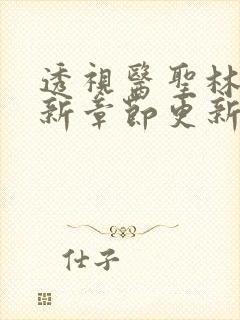 透視醫聖林
新章節更新
仕子